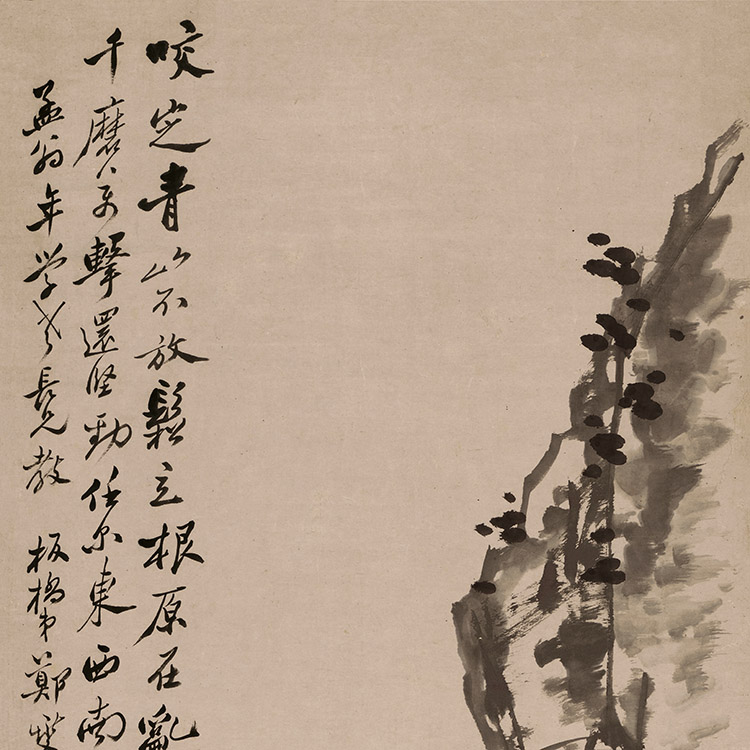 咬定青山不放鬆立根原在亂
千磨万擊還堅勁任尔東西南
孟翁年学老長兄教 板橋弟鄭燮